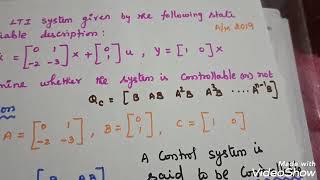 LTI system given by the following stati
iable description:
A/M 2019
ẋ = [0 1 -2 -3] x + [0 1] u , y = [1 0] x
mine whether the system is controllable or not
Qc = [B AB A²B A³B .... Aⁿ⁻¹B]
A = [0 1 -2 -3] , B = [0 1] , C = [1 0]
[B AB]
A control system is
said to be
Made with
VideoShow